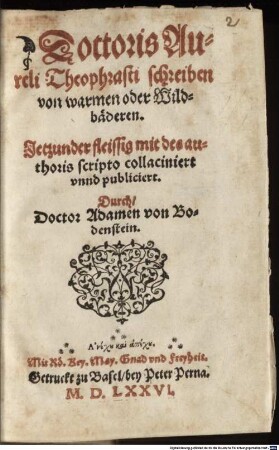 2
Doctoris Au-
reli Theophrasti schreiben
von warmen oder Wild-
bäderen.
Jetzunder fleissig mit des au-
thoris scripto collaciniert
vnnd publiciert.
Durch/
Doctor Adamen von Bo-
denstein.
Ἀνέχου καὶ ἀπέχου.
Mit Rö. Key. May. Gnad vnd Freyheit.
Getruckt zu Basel/bey Peter Perna.
M. D. LXXVI.